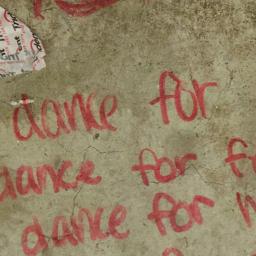 dance for
dance for
dance for